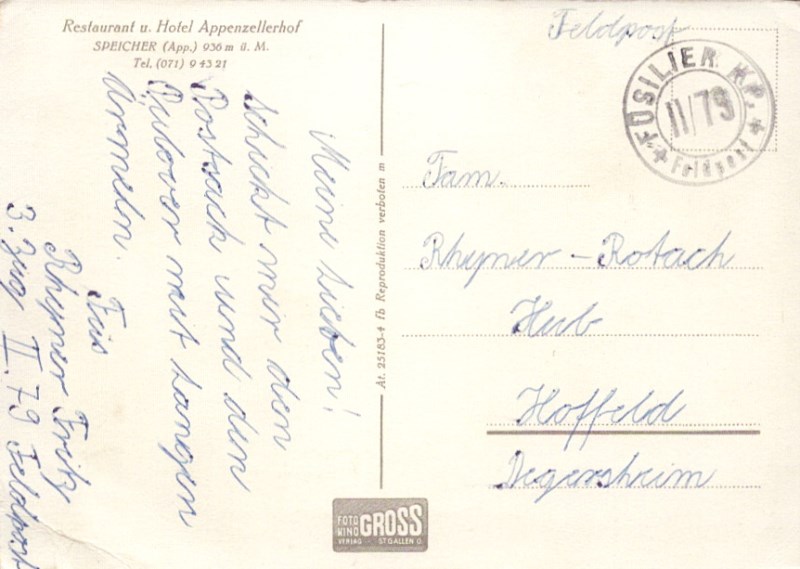 Restaurant u. Hotel Appenzellerhof
SPEICHER (App.) 936 m ü. M.
Tel. (071) 9 43 21
Meine Lieben!
Schickt mir den
Postsack und den
Pulover mit langen
Ärmeln.
Rhyner Fritz
3. Zug II.79 Feldpost
At. 25183-4 fb Reproduktion verboten m
Feldpost
FÜSILIER KP.
II/79
Feldpost
Fam.
Rhyner – Rotach
Hub
Hoffeld
Degersheim
FOTO
KINO
GROSS
VERLAG - ST GALLEN O.